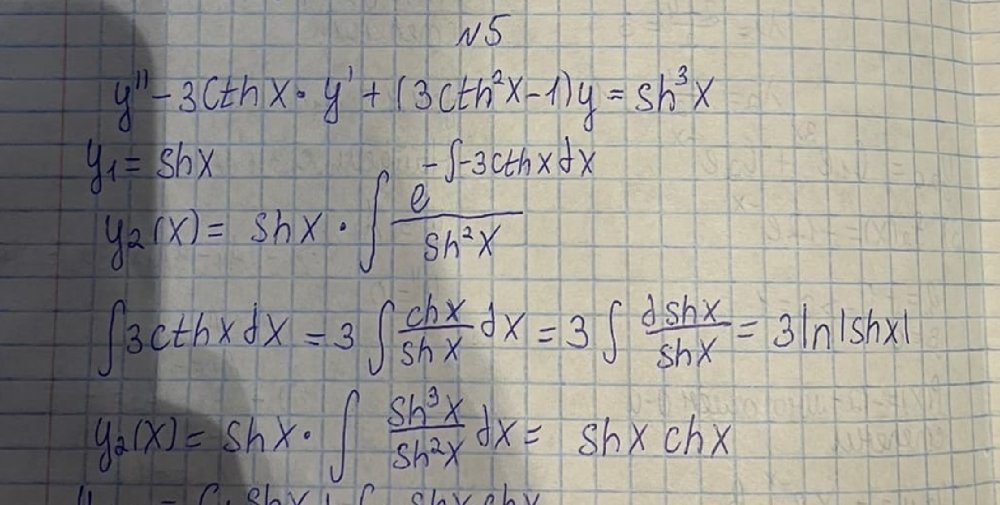 №5
y'' - 3cthx · y' + (3cth²x - 1)y = sh³x
y₁ = shx
y₂(x) = shx · ∫ e^(-∫-3cthxdx) / sh²x
∫3cthxdx = 3 ∫ chx/shx dx = 3 ∫ dshx/shx = 3ln|shx|
y₂(x) = shx · ∫ sh³x/sh²x dx = shx chx